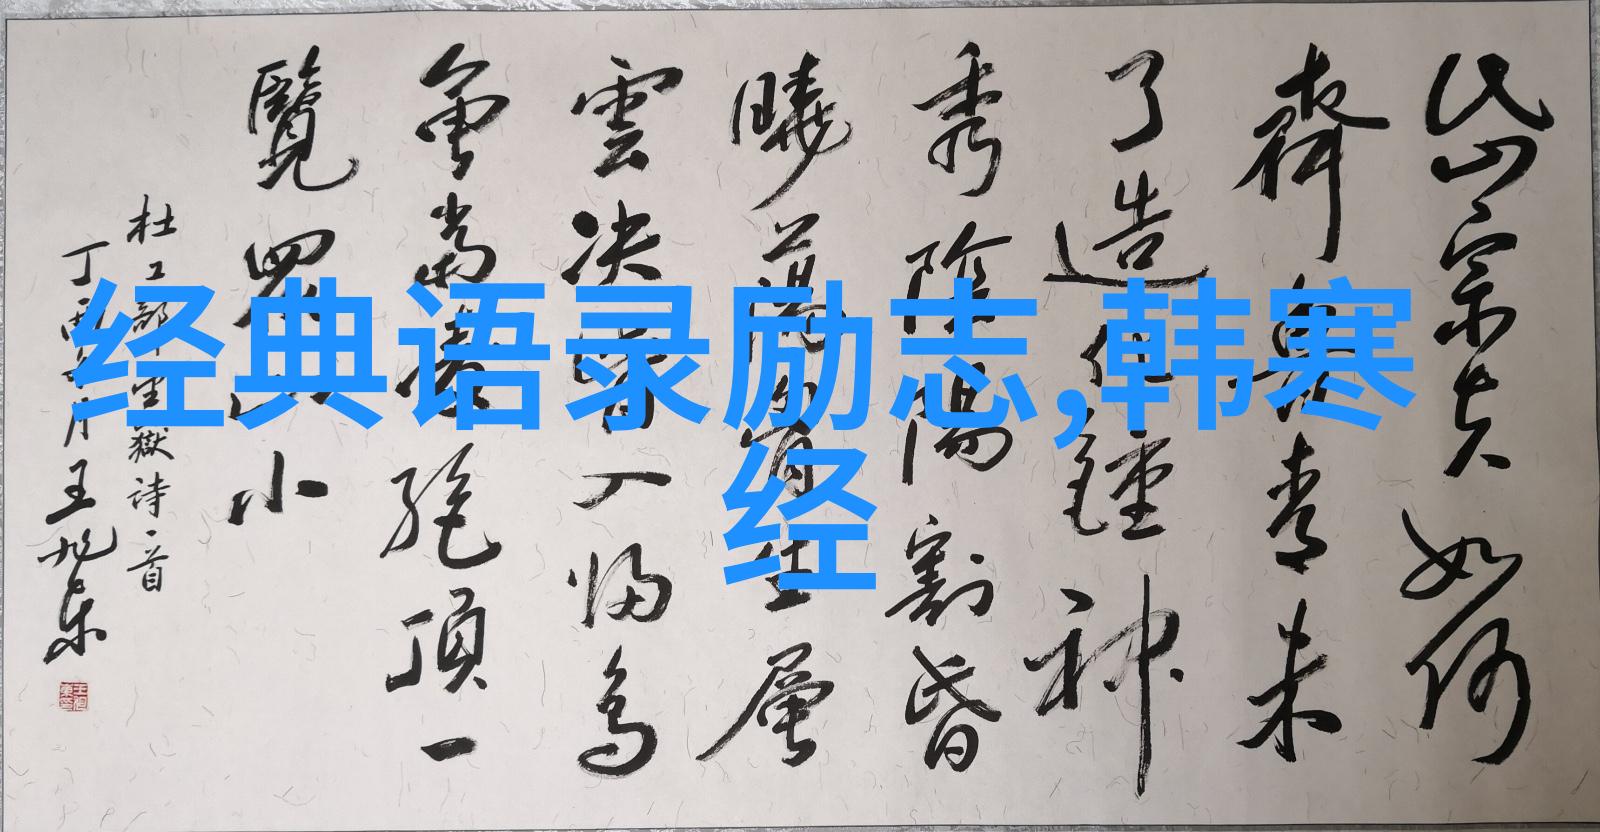 岱宗夫如何
齊魯青未
了造化鍾神
秀陰陽割昏
曉蕩胸生層
雲决眥入歸鳥
會當凌絶頂一
覽眾山小
杜工部望嶽詩一首
丁酉月王旭东
经典语录励志,韩寒
经